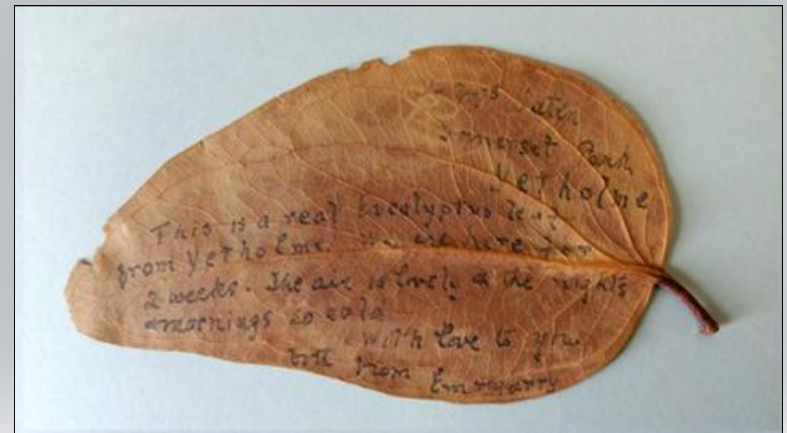 Somerset Park
Yetholme
This is a real Eucalyptus leaf
from Yetholme. We are here for
2 weeks. The air is lovely & the nights
& mornings so cold
With love to you
both from Em